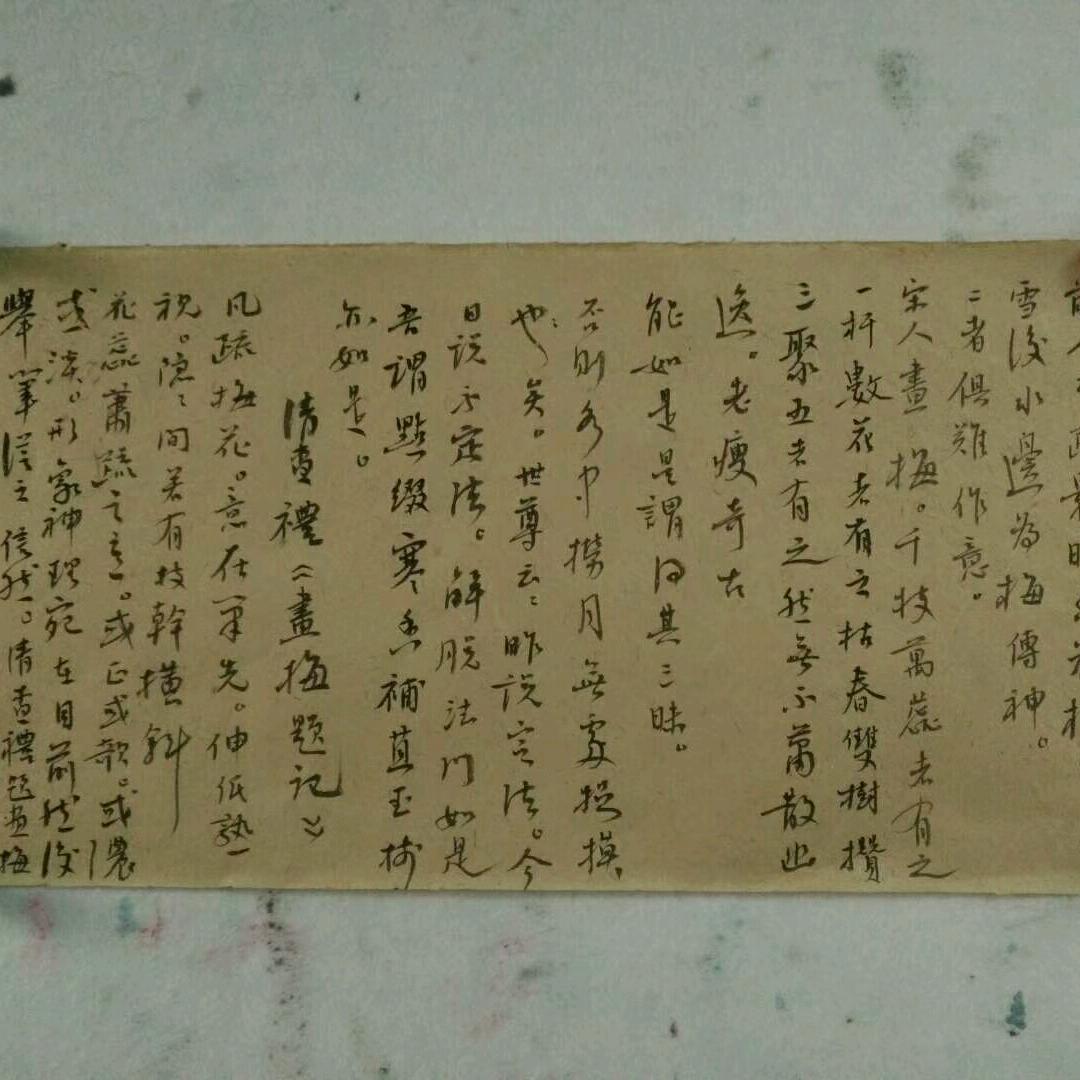 雪後水邊為梅傳神。
二者俱難作意。
宋人畫梅。千枝萬蕊者有之
一杆數花者有之枯春雙樹攢
三聚五者有之然無不蕭散幽
逸。老瘦奇古
能如是是謂得其三昧。
否則水中撈月無處捉摸
也矣。世尊云：昨說定法。今
日說不定法。解脫法門如是
吾謂點綴寒香補苴玉樹
亦如是。
清查禮《畫梅題記》
凡疏梅花。意在筆先。伸低熟
視。隱隱間若有枝幹橫斜
花蕊蕭疏之意。或正或欹。或濃
或淡。形象神理宛在目前然後
舉筆從之信然。清查禮題畫梅